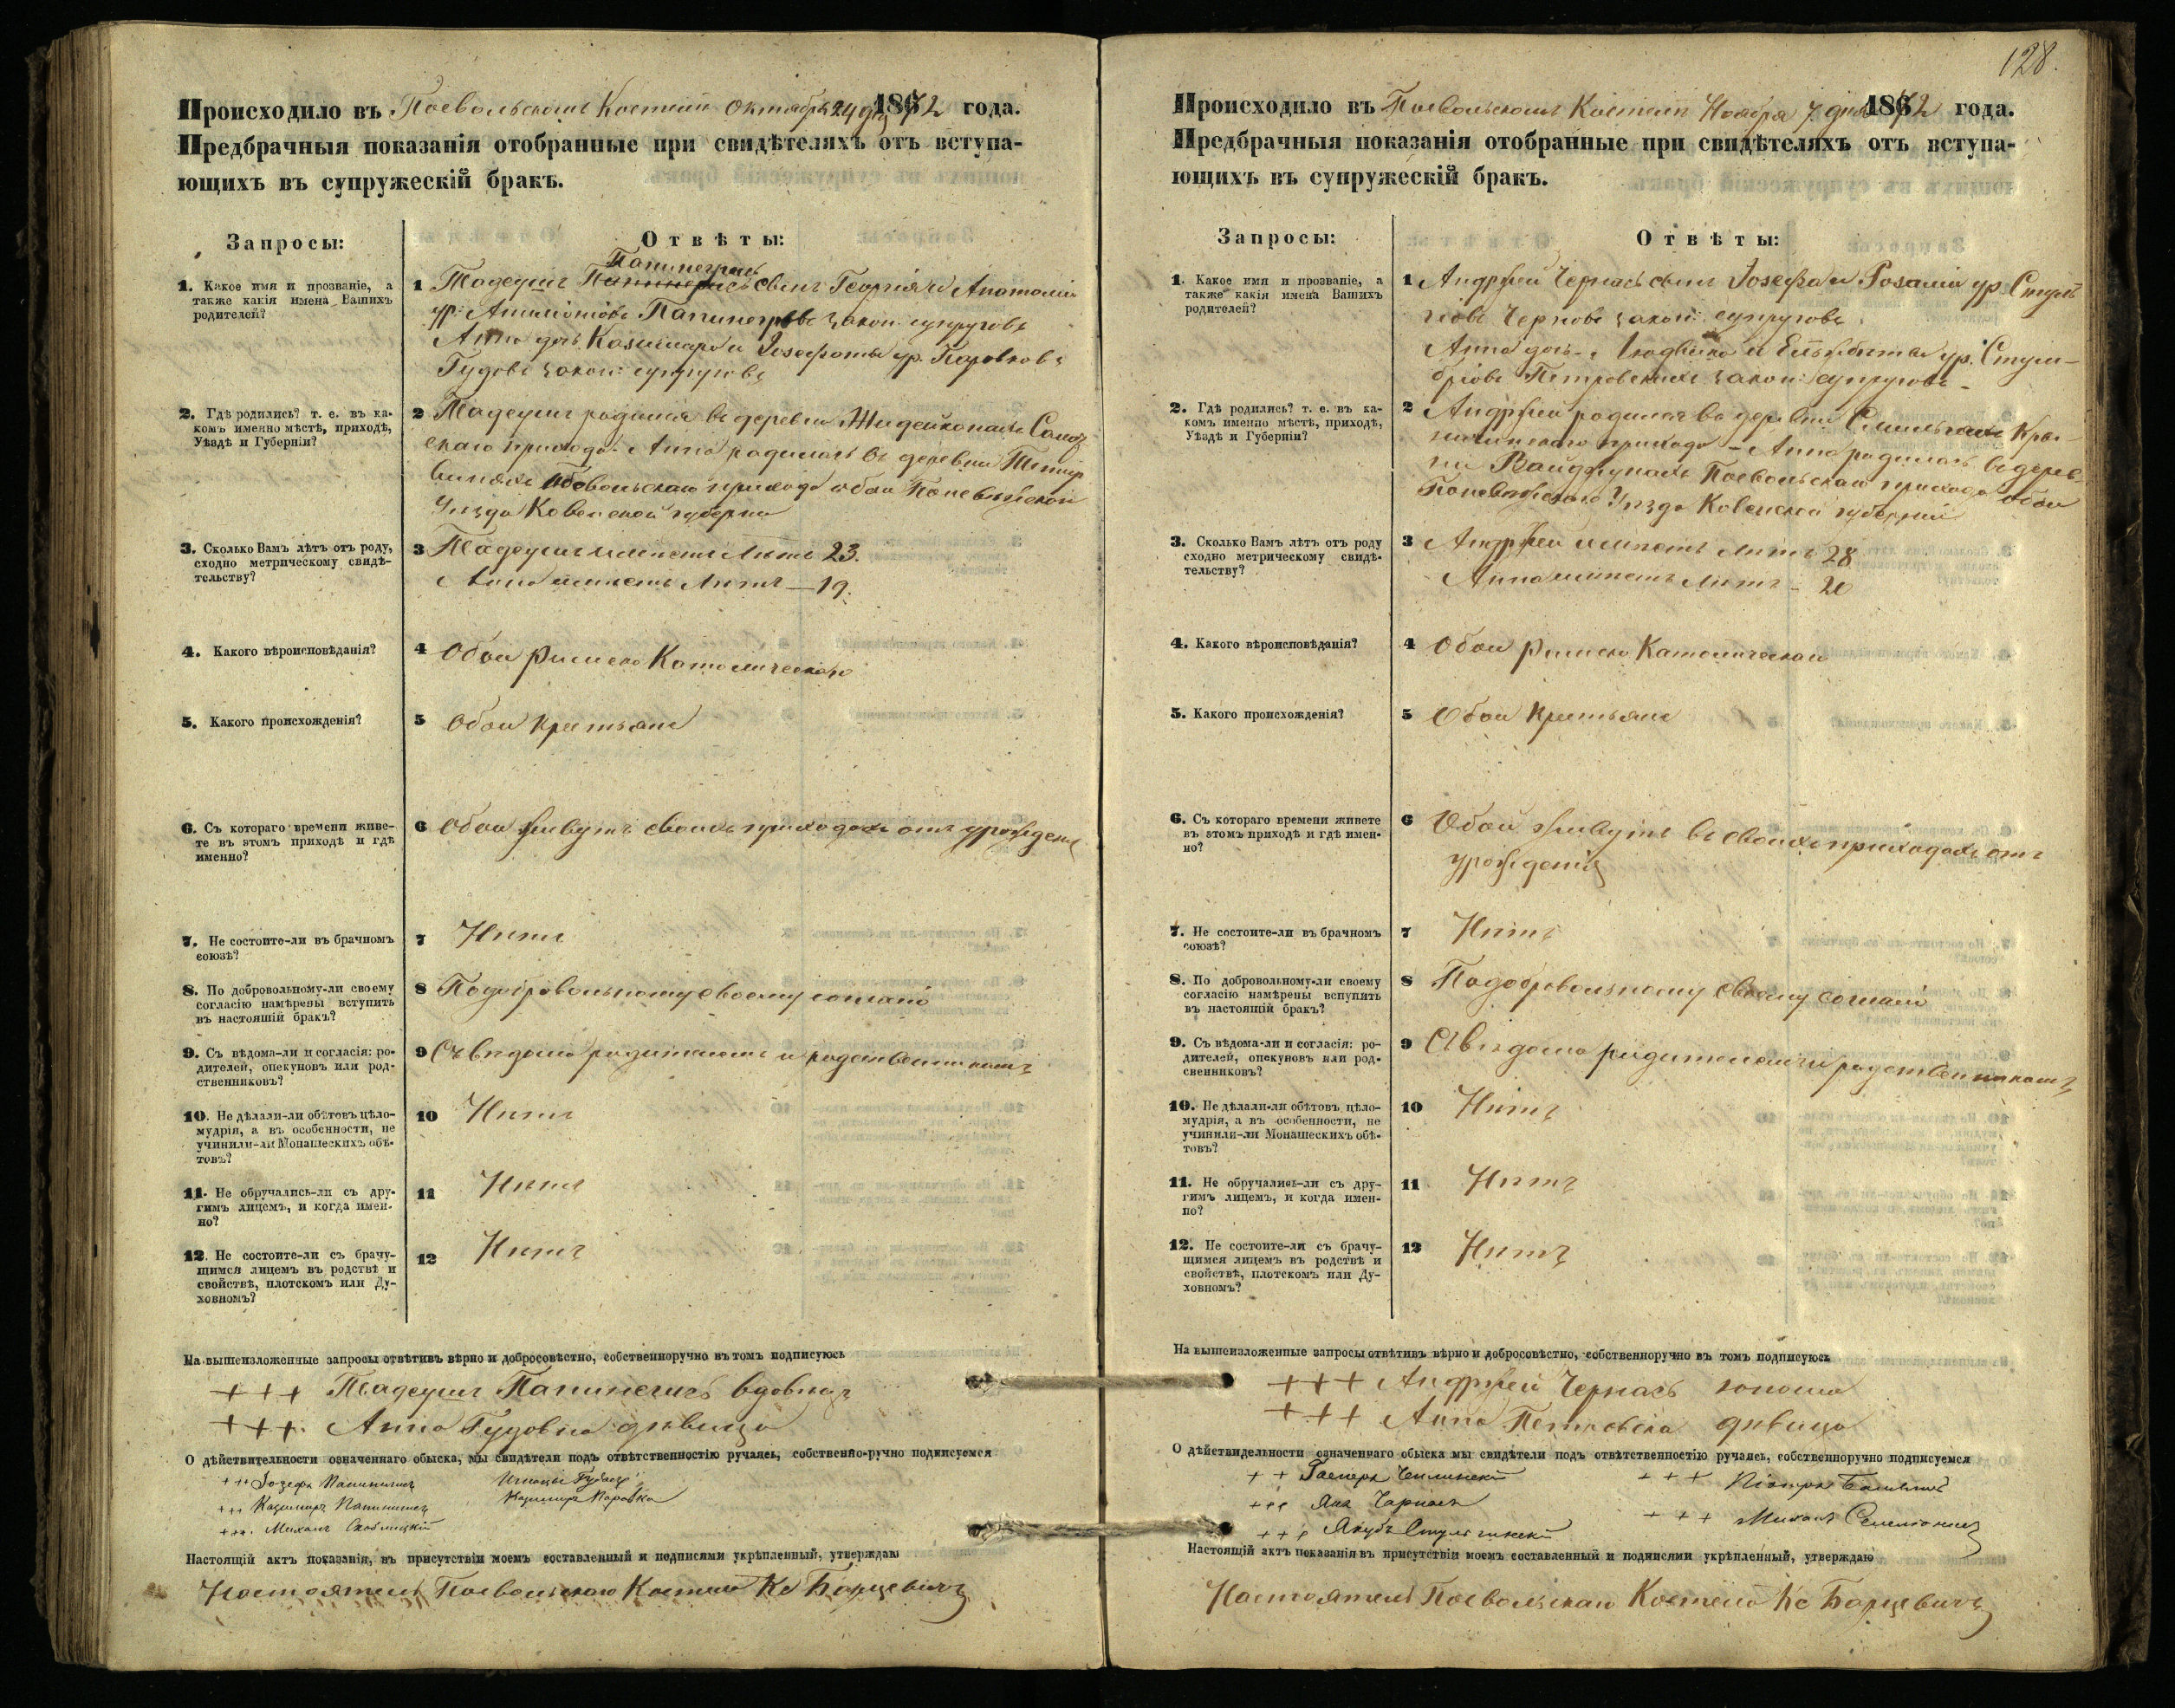 Происходило въ Поевольскомъ Костели Октября 24 дня 1872 года.
Предбрачныя показанія отобранные при свидѣтеляхъ отъ вступа-
ющихъ въ супружескій бракъ.
Запросы:
Отвѣты:
1. Какое имя и прозваніе, а
также какія имена Вашихъ
родителей?
1 Тадеушъ сынъ Георгія и Анатоліи
ур. закон: супруговъ
Анна дочь Казимира и Іозефаты ур. Поровковъ
Гудовъ закон: супруговъ
2. Гдѣ родились? т. е. въ ка-
комъ именно мѣстѣ, приходѣ,
Уѣздѣ и Губерніи?
2 Тадеушъ родился въ деревни
скаго прихода. Анна родилась въ деревни
Поевольскаго прихода обои Поневѣжской
Уѣзда Ковенской губерни
3. Сколько Вамъ лѣтъ отъ роду,
сходно метрическому свидѣ-
тельству?
3 Тадеушъ имѣетъ Лѣтъ 23.
Анна имѣетъ Лѣтъ — 19.
4. Какого вѣроисповѣданія?
4 Обои Римско Католическаго
5. Какого происхожденія?
5 Обои Крестьяне
6. Съ котораго времени живе-
те въ этомъ приходѣ и гдѣ
именно?
6 Обои живутъ своихъ приходахъ отъ урожденія
7. Не состоите-ли въ брачномъ
союзѣ?
7 Нѣтъ
8. По добровольному-ли своему
согласію намѣрены вступить
въ настоящій бракъ?
8 Подобровольному своему согласію
9. Съ вѣдома-ли и согласія: ро-
дителей, опекуновъ или род-
ственниковъ?
9 Съ вѣдома родителемъ и родственникомъ
10. Не дѣлали-ли обѣтовъ цѣло-
мудрія, а въ особенности, не
учинили-ли Монашескихъ обѣ-
товъ?
10 Нѣтъ
11. Не обручались-ли съ дру-
гимъ лицемъ, и когда имен-
но?
11 Нѣтъ
12. Не состоите-ли съ брачу-
щимся лицемъ въ родствѣ и
свойствѣ, плотскомъ или Ду-
ховномъ?
12 Нѣтъ
На вышеизложенные запросы отвѣтивъ вѣрно и добросовѣстно, собственноручно въ томъ подписуюсь
+++ Тадеушъ вдовецъ
+++ Анна Гудовна дѣвица
О дѣйствительности означеннаго обыска, мы свидѣтели подъ отвѣтственностію ручаясь, собственно-ручно подписуемся
+++ Іозефъ
+++ Казимиръ Казимиръ Поровка
+++ Михалъ
Настоящій актъ показанія, въ присутствіи моемъ составленный и подписями укрѣпленный, утверждаю
Настоятель Поевольскаго Костела Кс Барцевичъ
128.
Происходило въ Поевольскомъ Костели Ноября 7 дня 1872 года.
Предбрачныя показанія отобранные при свидѣтеляхъ отъ вступа-
ющихъ въ супружескій бракъ.
Запросы:
Отвѣты:
1. Какое имя и прозваніе, а
также какія имена Вашихъ
родителей?
1 Андржей Чернасъ сынъ Іозефа и Розаліи ур.
Черновъ закон: супруговъ
Анна дочь Людвика и Ельжбеты ур.
Петровскихъ закон: супруговъ
2. Гдѣ родились? т. е. въ ка-
комъ именно мѣстѣ, приходѣ,
Уѣздѣ и Губерніи?
2 Андржей родился въ деревни
прихода — Анна родилась въ дерев-
ни Поевольскаго прихода обои
Поневѣжскаго Уѣзда Ковенской губерніи
3. Сколько Вамъ лѣтъ отъ роду
сходно метрическому свидѣ-
тельству?
3 Андржей имѣетъ Лѣтъ 28
Анна имѣетъ Лѣтъ — 20
4. Какого вѣроисповѣданія?
4 Обои Римско Католическаго
5. Какого происхожденія?
5 Обои Крестьяне
6. Съ котораго времени живете
въ этомъ приходѣ и гдѣ имен-
но?
6 Обои живутъ въ своихъ приходахъ отъ
урожденія
7. Не состоите-ли въ брачномъ
союзѣ?
7 Нѣтъ
8. По добровольному-ли своему
согласію намѣрены вспупить
въ настоящій бракъ?
8 Подобровольному своему согласію
9. Съ вѣдома-ли и согласія: ро-
дителей, опекуновъ или род-
свенниковъ?
9 Съ вѣдома родителемъ и родственникомъ
10. Не дѣлали-ли обѣтовъ цѣло-
мудрія, а въ особенности, не
учинили-ли Монашескихъ обѣ-
товъ?
10 Нѣтъ
11. Не обручались-ли съ дру-
гимъ лицемъ, и когда имен-
но?
11 Нѣтъ
12. Не состоите-ли съ брачу-
щимся лицемъ въ родствѣ и
свойствѣ, плотскомъ или Ду-
ховномъ?
12 Нѣтъ
На вышеизложенные запросы отвѣтивъ вѣрно и добросовѣстно, собственноручно въ томъ подписуюсь
+++ Андржей Чернасъ юноша
+++ Анна Петровска дѣвица
О дѣйствидельности означеннаго обыска мы свидѣтели подъ отвѣтственностію ручаясь, собственноручно подписуемся
++ Гасперъ +++ Піотръ
+++ Янъ Чарнасъ +++ Михалъ
+++ Якубъ
Настоящій актъ показанія въ присутствіи моемъ составленный и подписями укрѣпленный, утверждаю
Настоятель Поевольскаго Костела Кс Барцевичъ